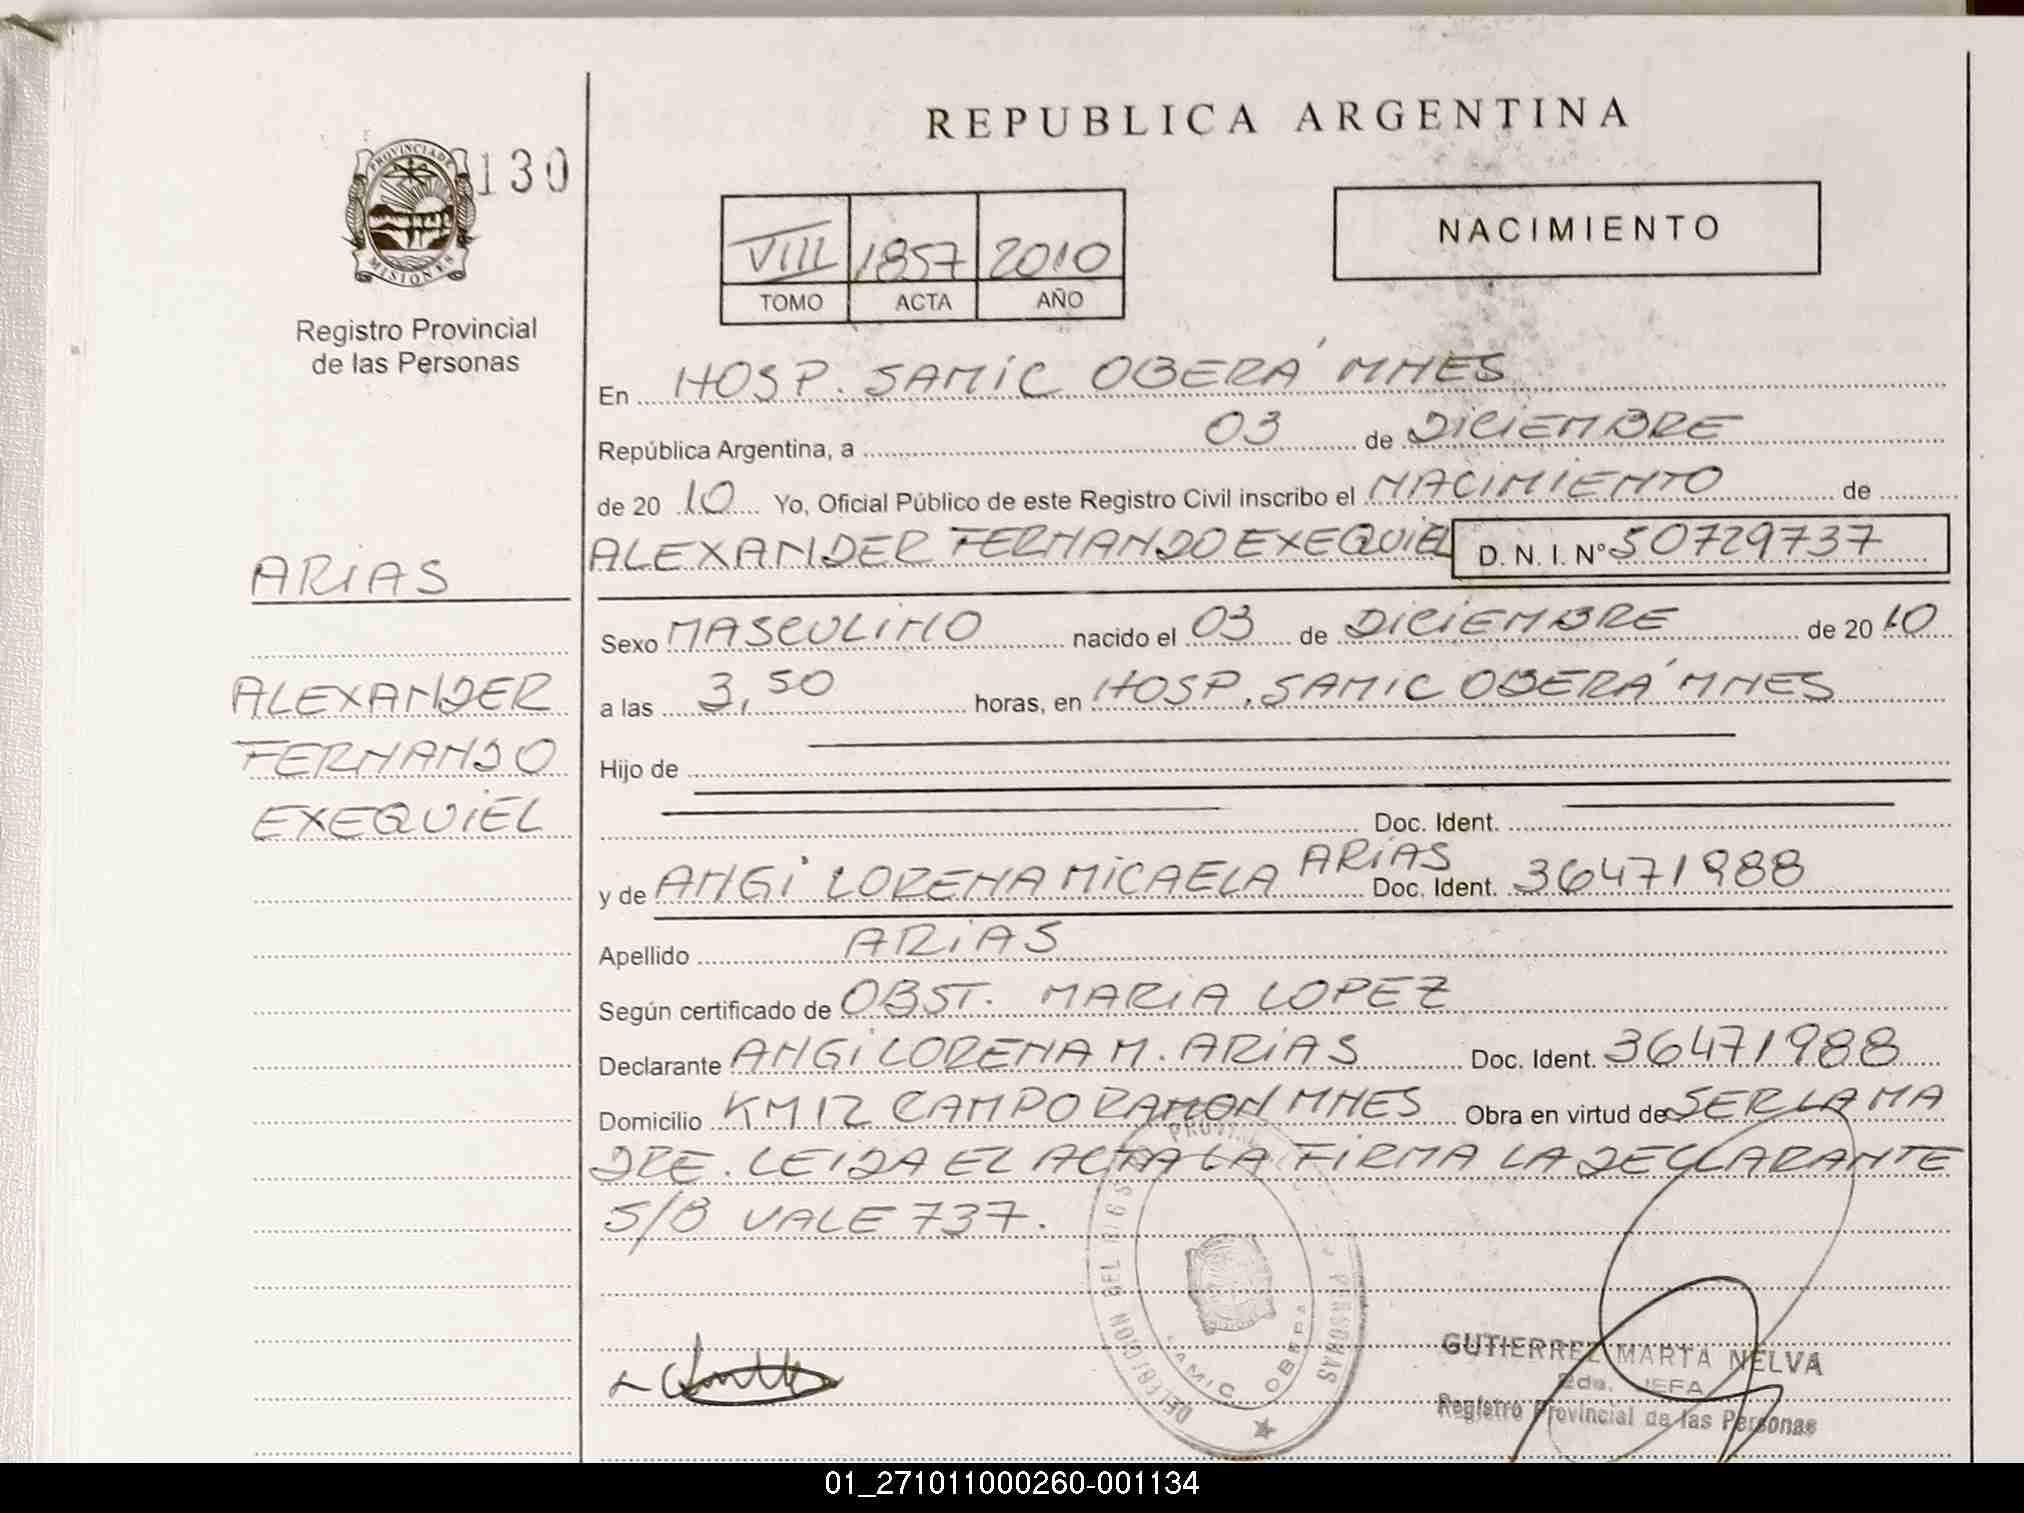 REPUBLICA ARGENTINA
PROVINCIA DE
MISIONES
130
Registro Provincial
de las Personas
VIII 1857 2010
TOMO ACTA AÑO
NACIMIENTO
En HOSP. SAMIC OBERÁ MNES
República Argentina, a 03 de DICIEMBRE
de 20 10 Yo, Oficial Público de este Registro Civil inscribo el NACIMIENTO de
ALEXANDER FERNANDO EXEQUIEL D. N. I. N° 50729737
ARIAS
ALEXANDER
FERNANDO
EXEQUIEL
Sexo MASCULINO nacido el 03 de DICIEMBRE de 20 10
a las 3,50 horas, en HOSP. SAMIC OBERÁ MNES
Hijo de
Doc. Ident.
y de ANGI LORENA MICAELA ARIAS Doc. Ident. 36471988
Apellido ARIAS
Según certificado de OBST. MARIA LOPEZ
Declarante ANGI LORENA M. ARIAS Doc. Ident. 36471988
Domicilio KM 12 CAMPO RAMON MNES Obra en virtud de SER LA MA
DRE. LEIDA EL ACTA LA FIRMA LA DECLARANTE
S/B VALE 737.
PERSONAS
SAMIC OBERA
GUTIERREZ MARTA NELVA
2da. JEFA
Registro Provincial de las Personas
01_271011000260-001134